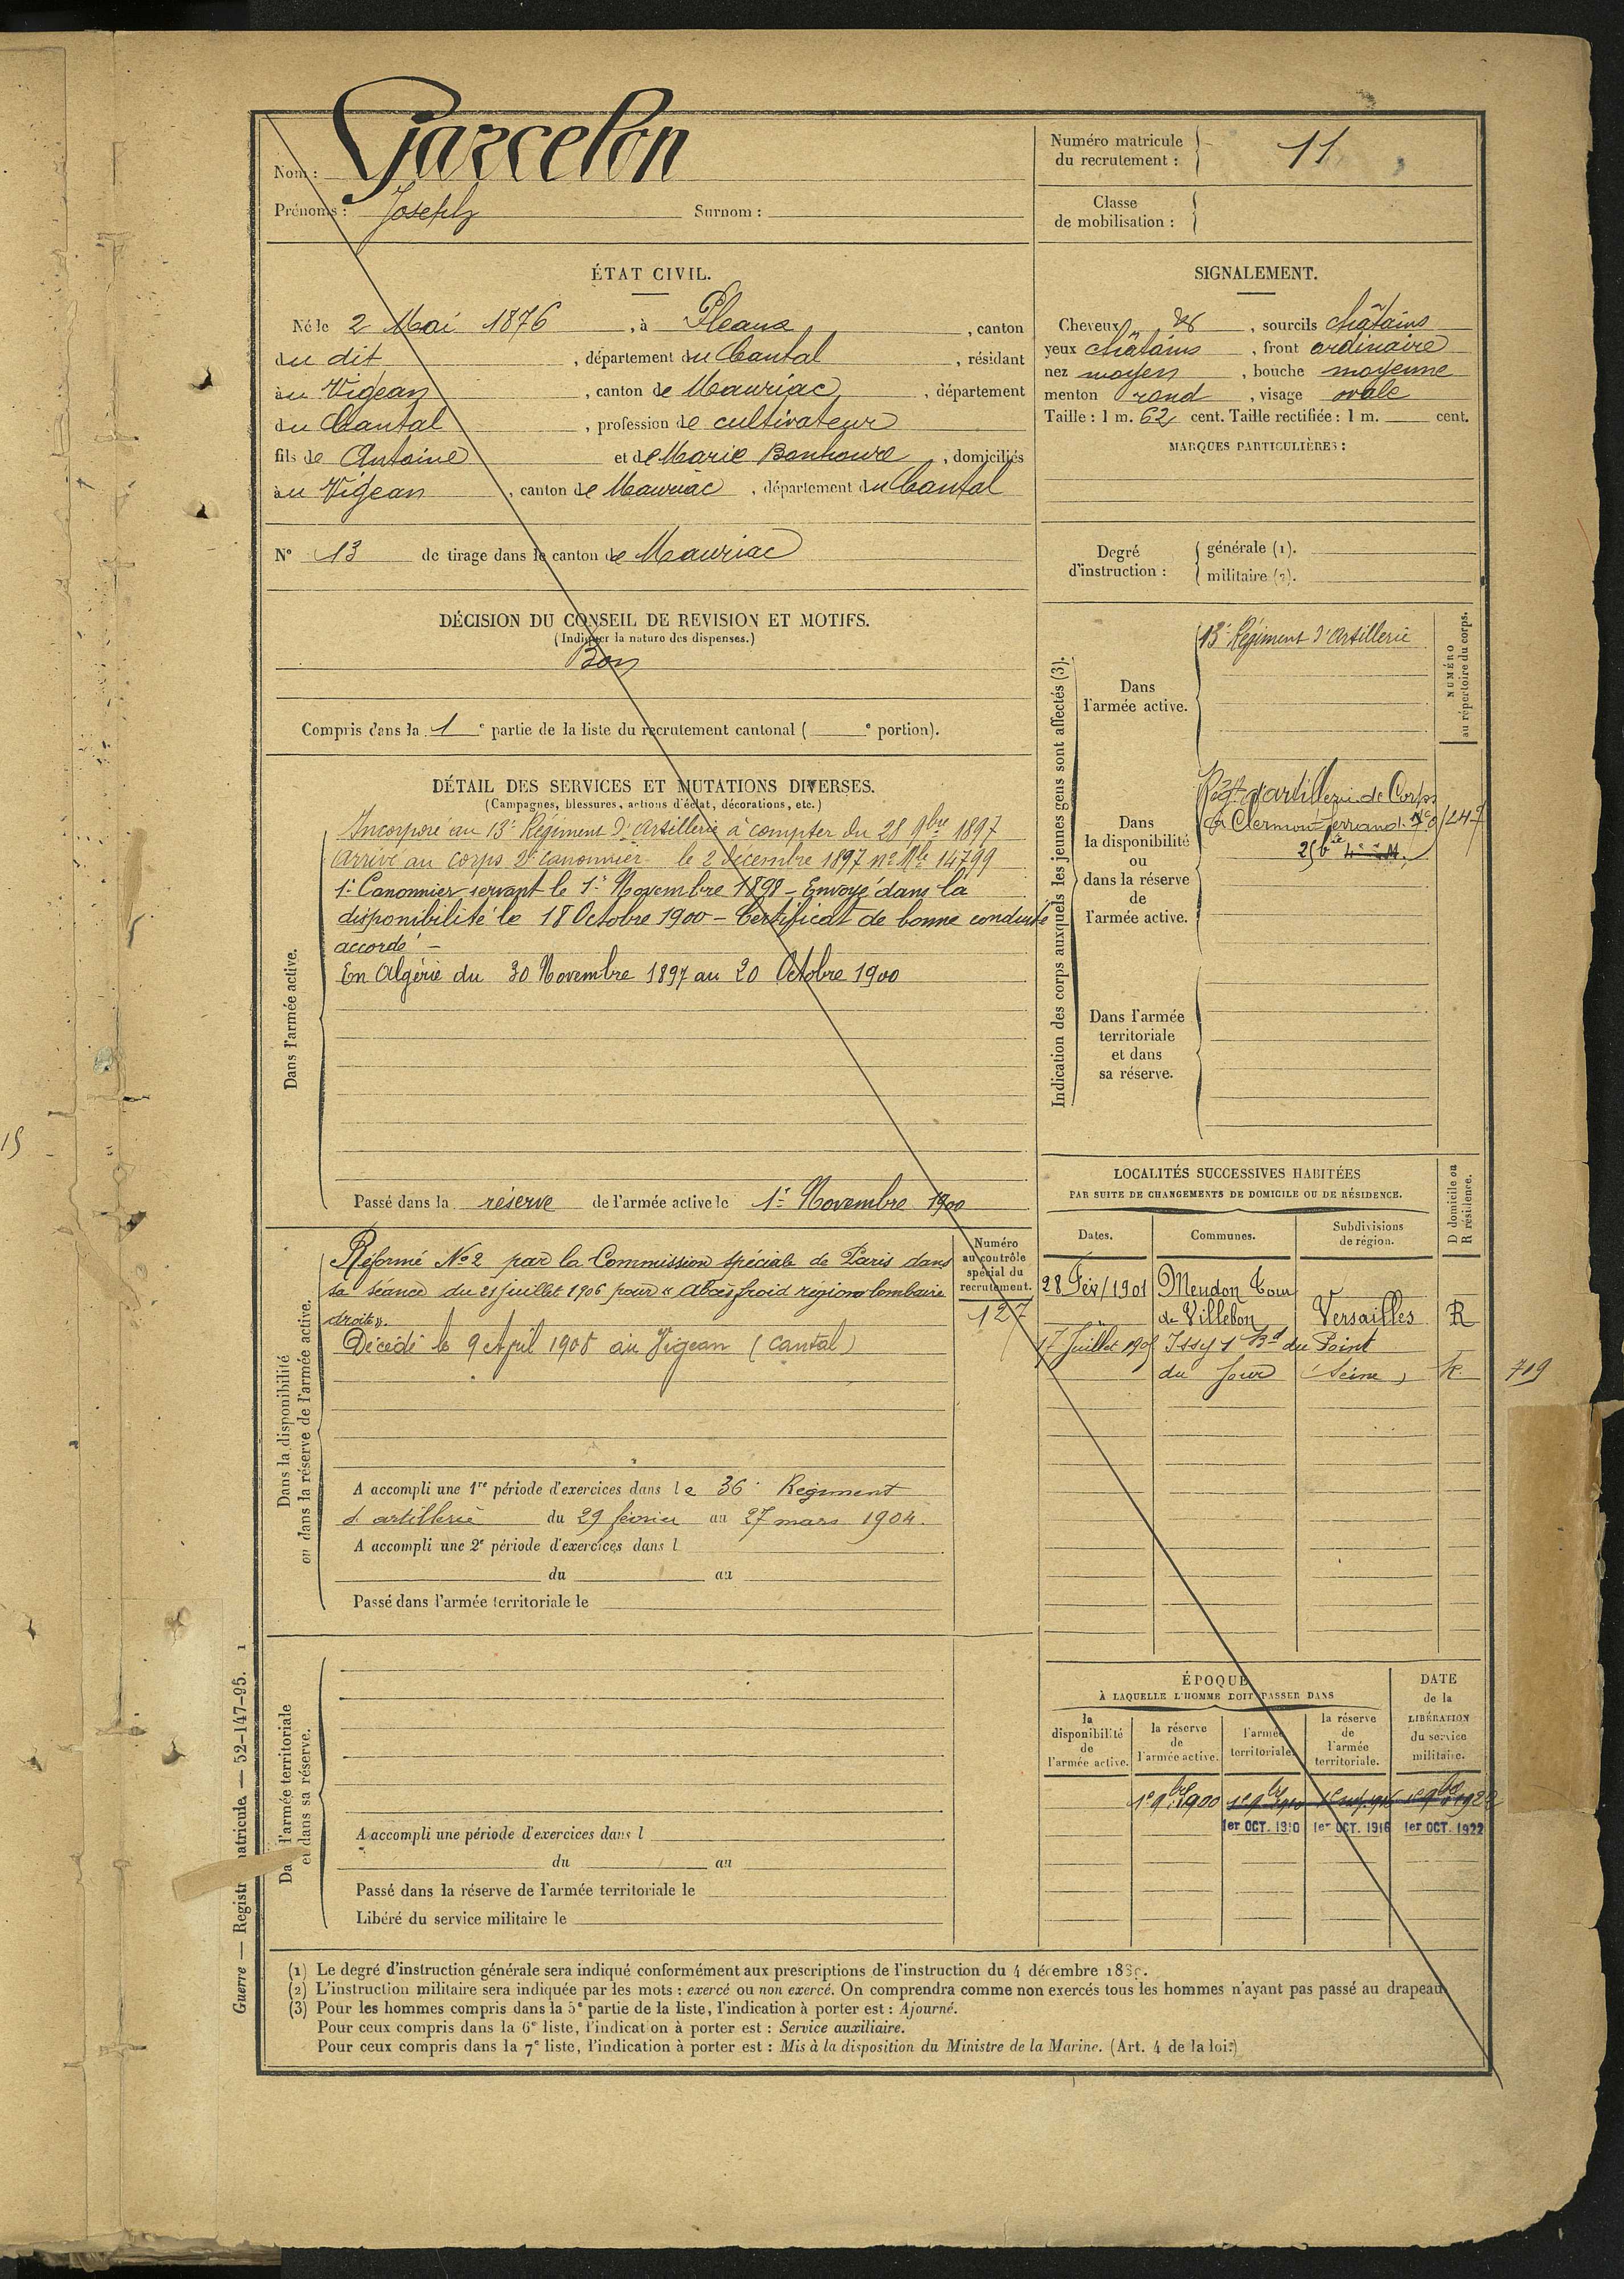 Nom : Garcelon
Prénoms : Joseph Surnom :
Numéro matricule du recrutement : 11
Classe de mobilisation :
ÉTAT CIVIL.
Né le 2 Mai 1876, à Pleaux, canton
du dit, département du Cantal, résidant
au Vigean, canton de Mauriac, département
du Cantal, profession de cultivateur
fils de Antoine et de Marie Bonhoure, domiciliés
au Vigean, canton de Mauriac, département du Cantal
N° 13 de tirage dans le canton de Mauriac
SIGNALEMENT.
Cheveux , sourcils châtains
yeux châtains, front ordinaire
nez moyen, bouche moyenne
menton rond, visage ovale
Taille : 1 m. 62 cent. Taille rectifiée : 1 m. cent.
MARQUES PARTICULIÈRES :
Degré d'instruction :
générale (1).
militaire (2).
DÉCISION DU CONSEIL DE REVISION ET MOTIFS.
(Indiquer la nature des dispenses.)
Bon
Compris dans la 1e partie de la liste du recrutement cantonal ( e portion).
DÉTAIL DES SERVICES ET MUTATIONS DIVERSES.
(Campagnes, blessures, actions d'éclat, décorations, etc.)
Dans l'armée active.
Incorporé au 13e Régiment d'Artillerie à compter du 28 9bre 1897
Arrivé au corps 2e canonnier le 2 décembre 1897 no Mle 14799
1er Canonnier servant le 1er Novembre 1898 – Envoyé dans la
disponibilité le 18 Octobre 1900 – Certificat de bonne conduite
accordé –
En Algérie du 30 Novembre 1897 au 20 Octobre 1900
Passé dans la réserve de l'armée active le 1er Novembre 1900
Indication des corps auxquels les jeunes gens sont affectés (3).
NUMÉRO au répertoire du corps.
Dans l'armée active.
13e Régiment d'Artillerie
Dans la disponibilité ou dans la réserve de l'armée active.
Régt d'artillerie de Corps
à Clermont-Ferrand. 1247
Dans l'armée territoriale et dans sa réserve.
Dans la disponibilité ou dans la réserve de l'armée active.
Réformé No 2 par la Commission spéciale de Paris dans
sa séance du 21 juillet 1906 pour « Abcès froid région lombaire
droite ».
Décédé le 9 Avril 1908 au Vigean (Cantal)
Numéro au contrôle spécial du recrutement.
127
A accompli une 1re période d'exercices dans le 36e Régiment
d'artillerie du 29 février au 27 mars 1904.
A accompli une 2e période d'exercices dans l
du au
Passé dans l'armée territoriale le
LOCALITÉS SUCCESSIVES HABITÉES
PAR SUITE DE CHANGEMENTS DE DOMICILE OU DE RÉSIDENCE.
Dates. Communes. Subdivisions de région. D domicile ou R résidence.
28 Fév 1901 Meudon Tour
de Villebon Versailles R
17 Juillet 1905 Issy 1 Bd du Point
du Jour (Seine) R. 719
Dans l'armée territoriale et dans sa réserve.
A accompli une période d'exercices dans l
du au
Passé dans la réserve de l'armée territoriale le
Libéré du service militaire le
ÉPOQUE
À LAQUELLE L'HOMME DOIT PASSER DANS
la disponibilité de l'armée active.
la réserve de l'armée active.
l'armée territoriale.
la réserve de l'armée territoriale.
DATE de la LIBÉRATION du service militaire.
1er 9bre 1900
1er OCT. 1910 1er OCT. 1916 1er OCT. 1922
(1) Le degré d'instruction générale sera indiqué conformément aux prescriptions de l'instruction du 4 décembre
(2) L'instruction militaire sera indiquée par les mots : exercé ou non exercé. On comprendra comme non exercés tous les hommes n'ayant pas passé au drapeau.
(3) Pour les hommes compris dans la 5e partie de la liste, l'indication à porter est : Ajourné.
Pour ceux compris dans la 6e liste, l'indication à porter est : Service auxiliaire.
Pour ceux compris dans la 7e liste, l'indication à porter est : Mis à la disposition du Ministre de la Marine. (Art. 4 de la loi.)
Guerre — Registr matricule — 52-147-95. 1